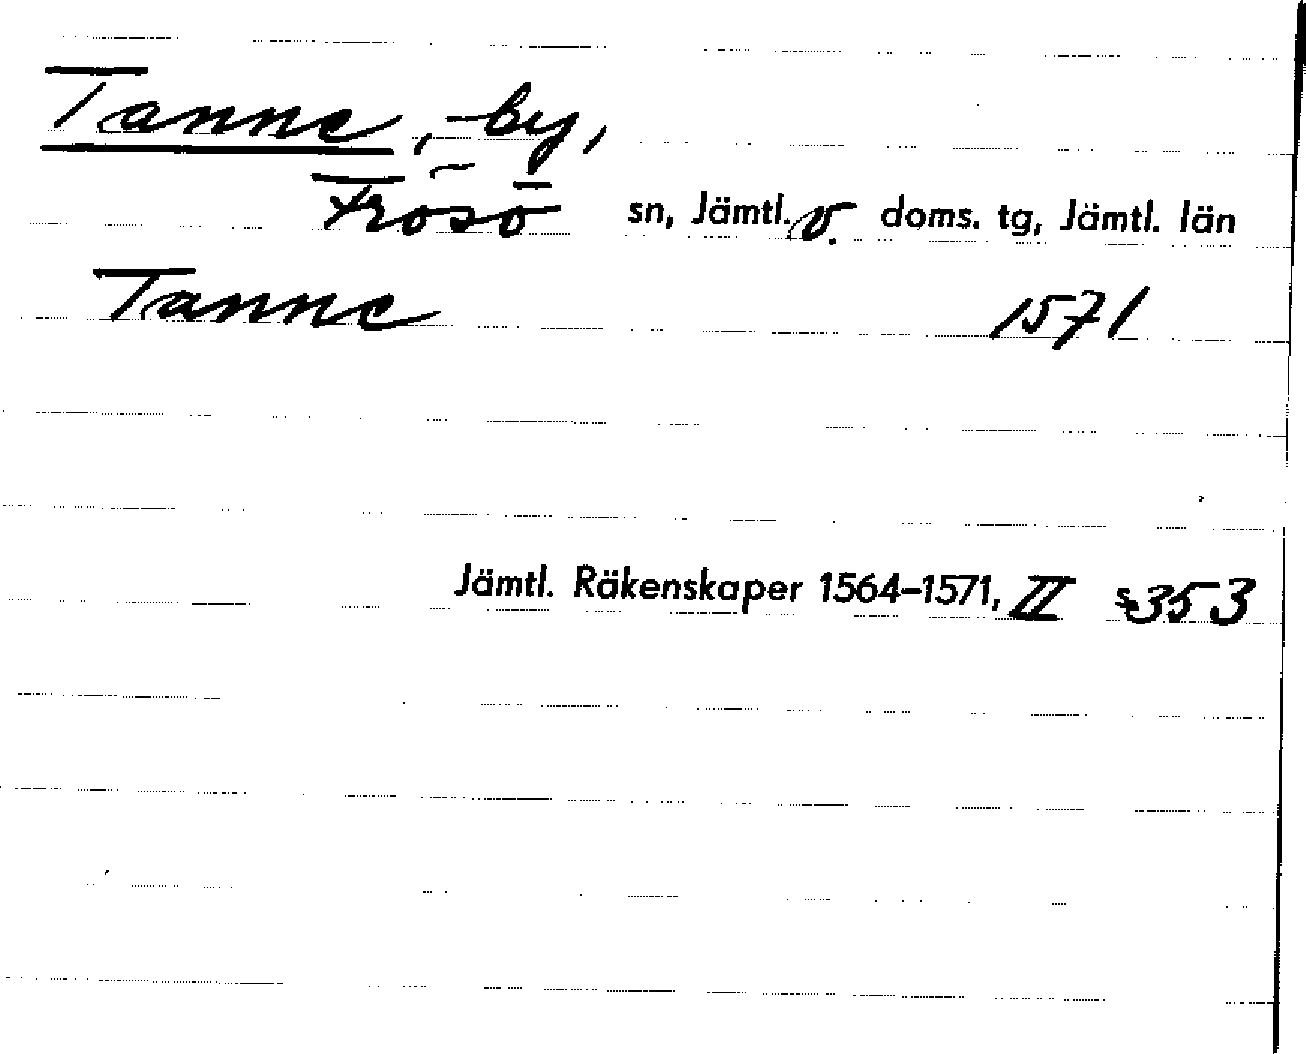 Tanne, -by,
Frösö sn, Jämtl. v. doms. tg, Jämtl. län
Tanne 1571
Jämtl. Räkenskaper 1564–1571, II s 353